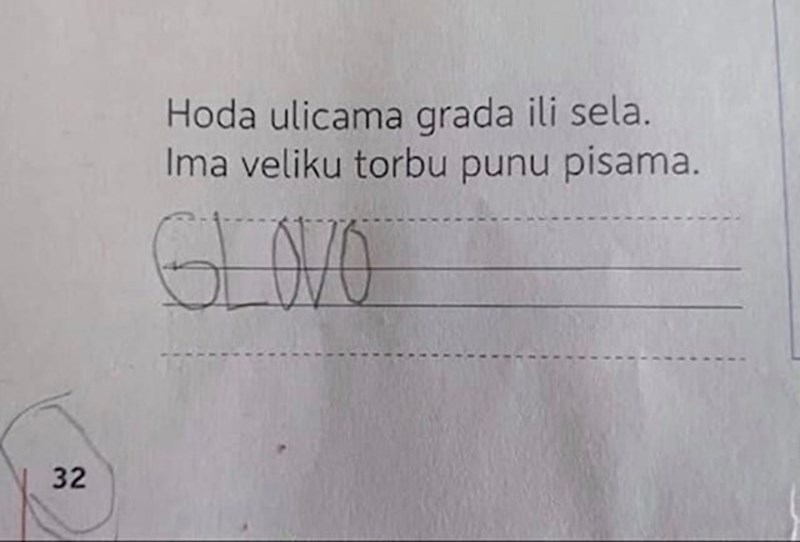 Hoda ulicama grada ili sela.
Ima veliku torbu punu pisama.
GLOVO
32